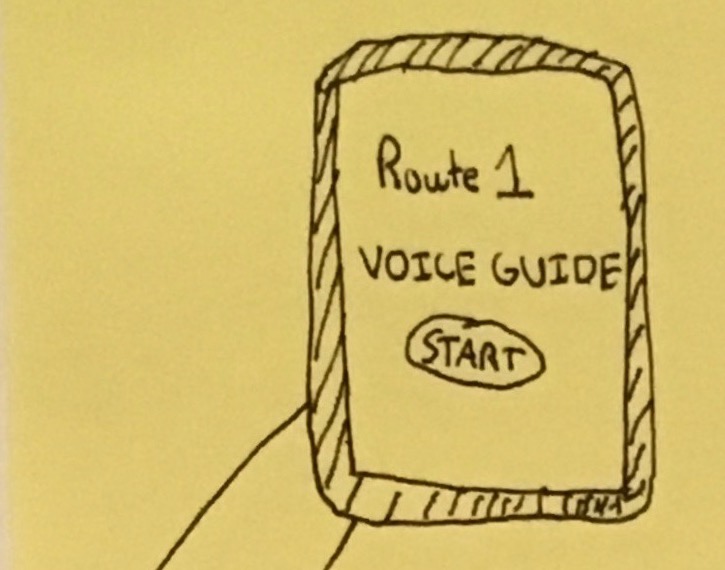 Route 1
VOICE GUIDE
START